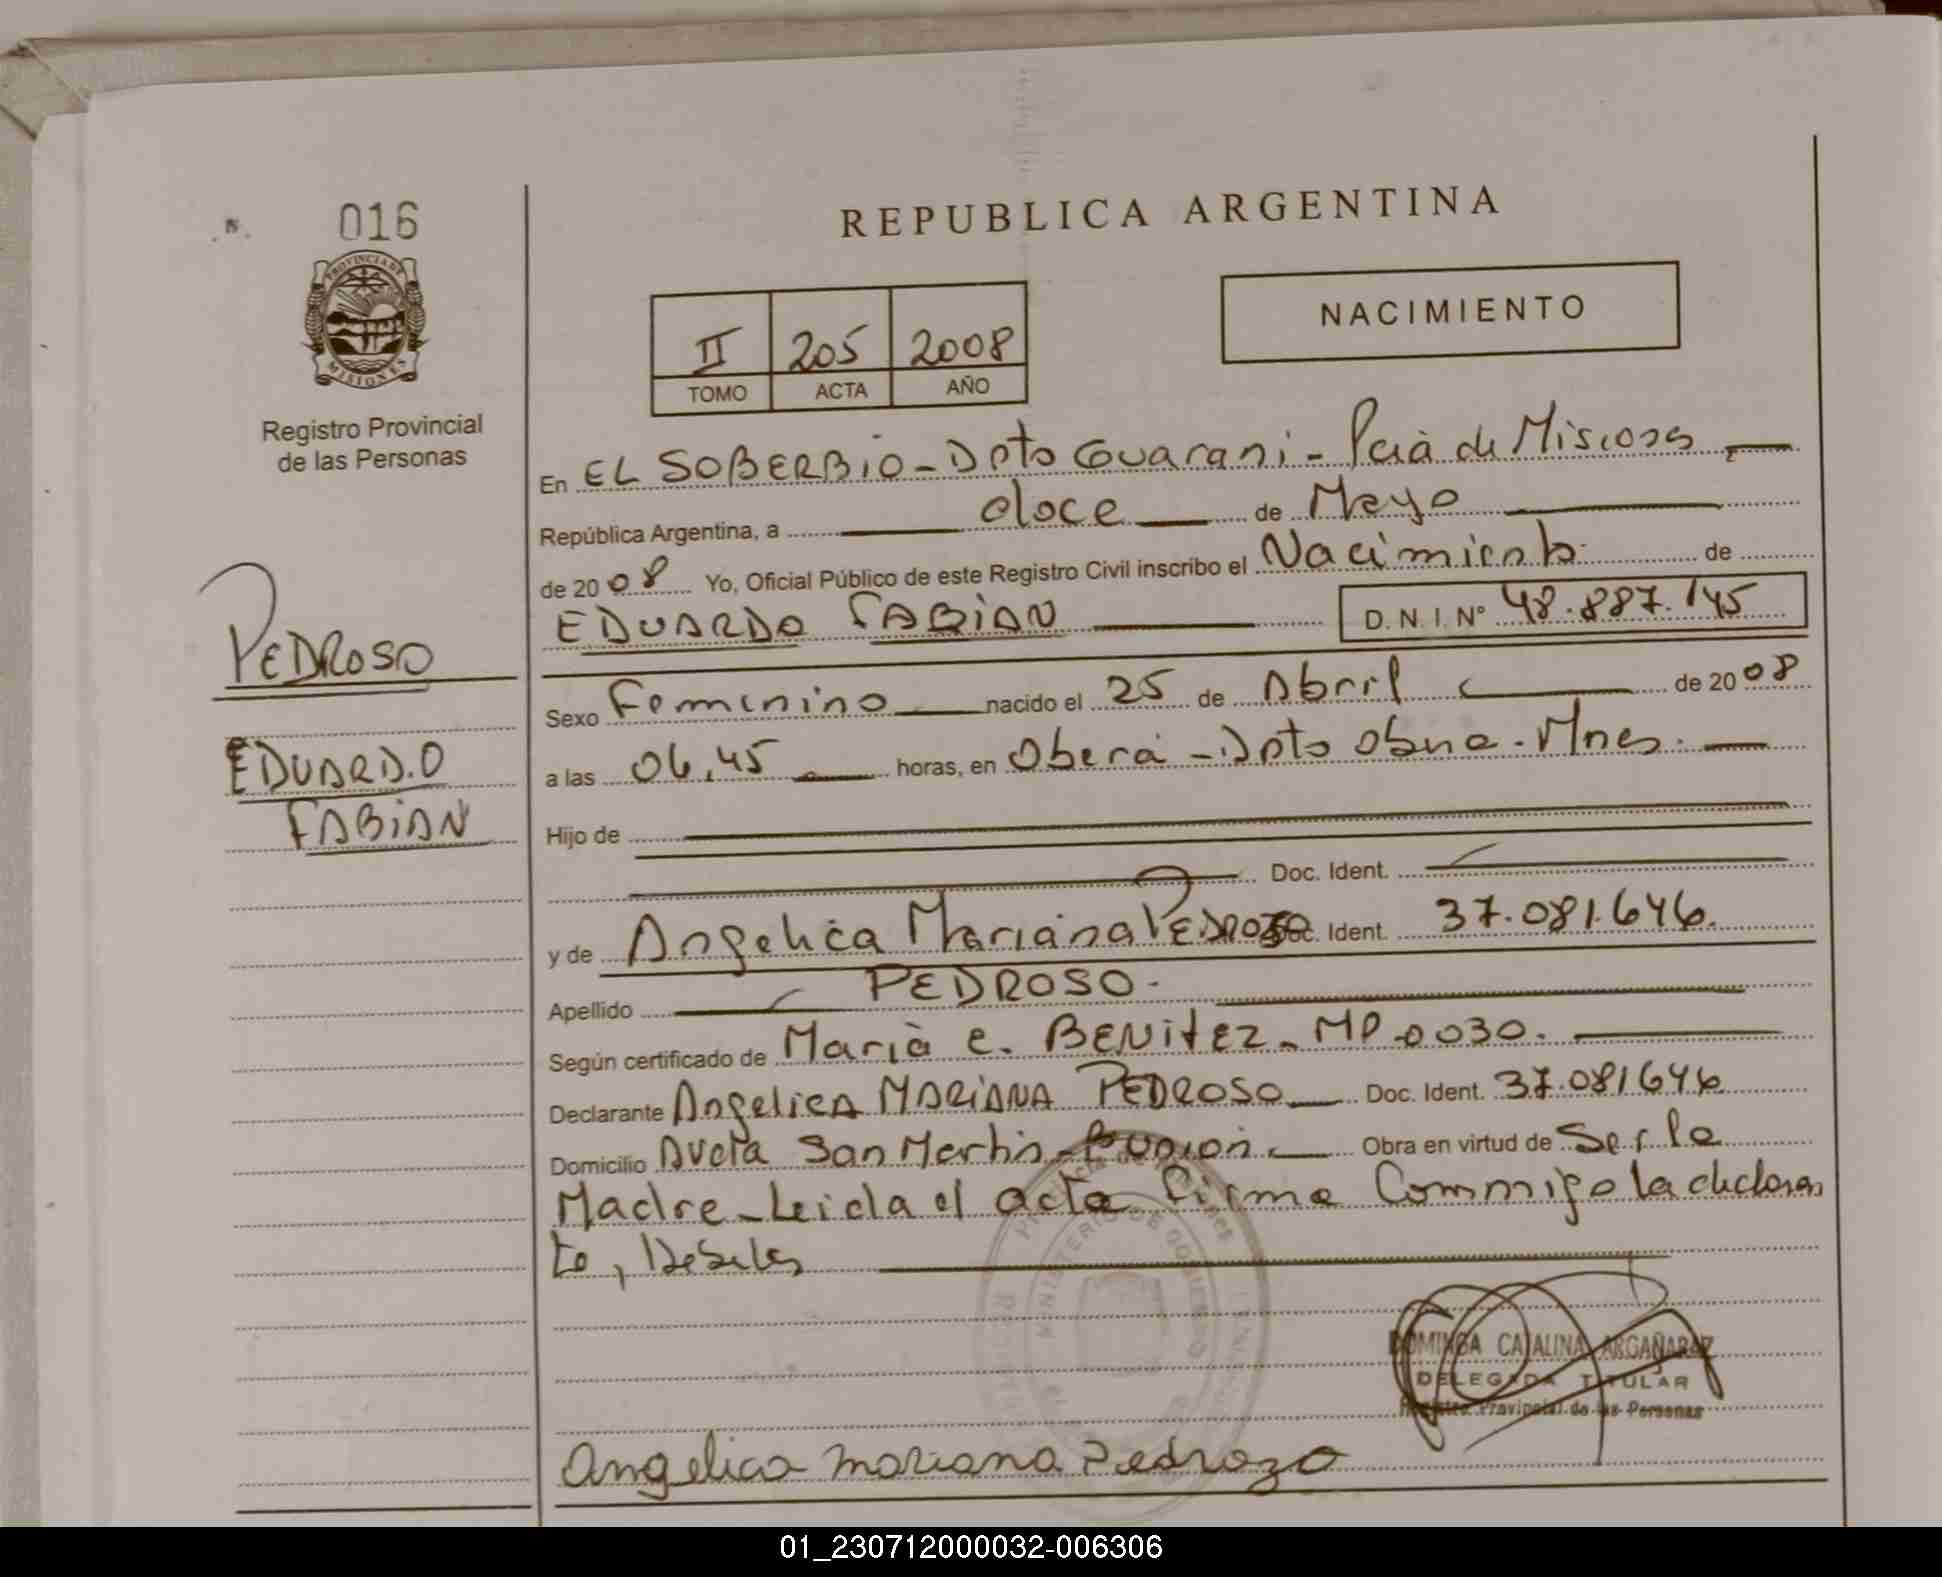 016
PROVINCIA DE
MISIONES
Registro Provincial
de las Personas
PEDROSO
EDUARDO
FABIAN
REPUBLICA ARGENTINA
NACIMIENTO
II 205 2008
TOMO ACTA AÑO
En EL SOBERBIO - Dpto Guarani - Pcia de Misiones
República Argentina, a doce de Mayo
de 2008 Yo, Oficial Público de este Registro Civil inscribo el Nacimiento de
EDUARDO FABIAN D.N.I. Nº 48.887.145
Sexo Femenino nacido el 25 de Abril de 2008
a las 06,45 horas, en Oberá - Dpto Obera - Mnes.
Hijo de
Doc. Ident.
y de Angelica Mariana PEDROSO Doc. Ident. 37.081.646.
Apellido PEDROSO.
Según certificado de Marià e. BENITEZ - MP 0030.
Declarante Angelica MARIANA PEDROSO Doc. Ident. 37.081646
Domicilio Avda San Martin Obra en virtud de Ser la
Madre - Leida el acta firma Commigo la declaran
te,
MINISTERIO DE GOBIERNO
DOMINGA CATALINA ARGAÑARAZ
DELEGADA TITULAR
Registro Provincial de las Personas
Angelica mariana Pedrozo
01_230712000032-006306